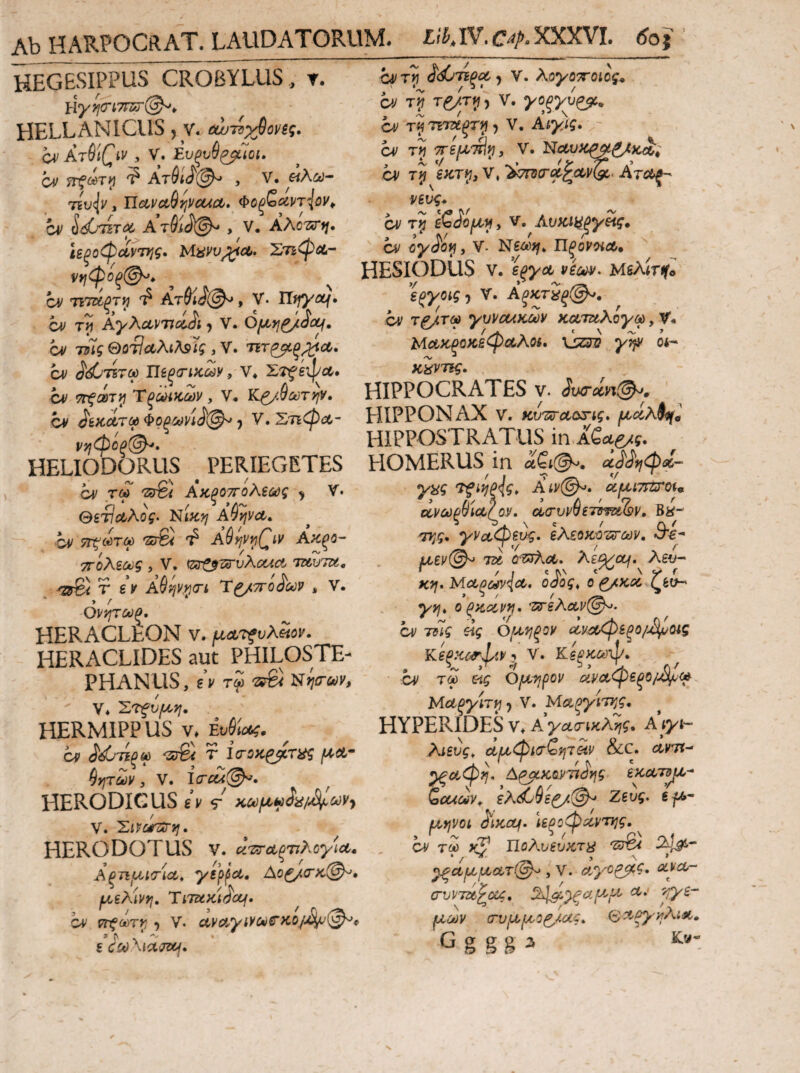 Ab HARPOCRAT. LAUDATORUM. Lib. IV. Cap. XXXVI. 605
HEGESIPPUS CROBYLUS, v.
Ηγήσιππος.
HELLANICUS, v. αὐτόχθονες.
ἐν Ατθίσιν , v. Ευρυθράιοι.
ἐν πρώτῃ τ̃ Ατθίδος , v. εἱλω-
τευειν , Παναθήναια. Φορβαντειον.
ἐν δευτέρα Ατθίδος , v. Αλόπη.
ἱεροφάντης. Μουνυχία. Στεφα-
νηφόρος.
ἐν τετάρτη τ̃ Ατθίδος, v. Πηγαί.
ἐν τῇ Αγλαντιάδι, v. Ομηρίδαι.
ἐν τοῖς Θετταλικοῖς , v. τετραρχία.
ἐν δευτέρω Περσικῶν, v. Στρεψα.
ἐν πρώτῃ Τρωικῶν , v. Κριθωτήν.
ἐν δεκάτῳ Φορωνίδος, v. Στεφα-
νηφόρος.
HELIODORUS PERIEGETES
ἐν τῷ περὶ Ακροπόλεως , v.
Θετταλός. Νίκη Αθηνα.
ἐν πρώτω περὶ τ̃ Αθήνησιν Ακρο-
πόλεως , v. προπύλαια ταῦτα.
περὶ τ̃ ἐν Αθήνησι Τριπόδων , v.
Ονήτωρ.
HERACLEON v. ματρυλεῖον.
HERACLIDES aut PHILOSTE-
PHANUS, ἐν τῷ περὶ Νήσων,
v. Στρύμη.
HERMIPPUS v. Ευθίας.
ἐν δευτέρῳ περὶ τ̃ Ισοκράτους μα-
θητῶν, v. Ισαῖος.
HERODICUS ἐν ϛ κωμῳδουμένων,
v. Σινώπη.
HERODOTUS v. ἀπαρτιλογία.
Αρτεμισία. γέρρα. Δορίσκος.
μελίνη. Τιτακίδαι.
ἐν πρώτη , v. ἀναγινωσκόμενος
ἐδωλιάσαι.
ἐν τῇ δευτέρα, v. λογοποιός.
ἐν τῇ τρίτη, v. γοργυρα.
ἐν τῇ τετάρτη , v. Αιγίς.
ἐν τῇ πέμπτη, v. Ναυκραρικά.
ἐν τῇ ἕκτη, v. ἀποσάξαντα. Αταρ-
νευς.
ἐν τῇ ἑβδόμη, v. Λυκιουργεῖς.
ἐν ὀγδόη, v. Νεώη. Πρόνοια.
HESIODUS v. ἔργα νέων. Μελίτη.
ἔργοις, v. Αρκτοῦρος.
ἐν τρίτω γυναικῶν καταλόγω, v.
Μακροκέφαλοι. ὑπὸ γῆν οἰ-
κοῦντες.
HIPPOCRATES v. δυσάνιος.
HIPPONAX v. κύπασσις. μάλθη.
HIPPOSTRATUS in Αβαρις.
HOMERUS in ἄβιος. ἀδδηφά-
γους τριήρεις. Αἶνος. ἀμιπποι.
ἀνωρθίαζον. ἀσυνθετώτατον. Βου-
της. γναφευς. ἑλεοκόπων. θέ-
μενος τὰ ὅπλα. λέρχαι. λευ-
κη. Μαρώνεια. ὁδός. ὁρικὸν ζευ-
γη. ὀρκάνη. πέλανος.
ἐν τοῖς εἰς Ομηρον ἀναφερομένοις
Κέρκωψιν, v. Κέρκωψ.
ἐν τῷ εἰς Ομηρον ἀναφερομένῳ
Μαργίτη, v. Μαργίτης.
HYPERIDES v. Αγασικλῆς. Αἰγι-
λιευς. ἀμφισβητεῖν &c. ἀντι-
γραφη. Δρακοντίδης ἑκατόμ-
βαιών. ἐλευθέριος Ζευς. ἔμ-
μηνοι δίκαι. ἱεροφάντης.
ἐν τῷ κτ̃ Πολυευκτου περὶ Δια-
γράμματος , v. ἀγορᾶς. ἀνα-
συντάξας. Διάγραμμα. ἡγε-
μὼν συμμορίας. Θαργήλια.
Gggg 3 Κυ-